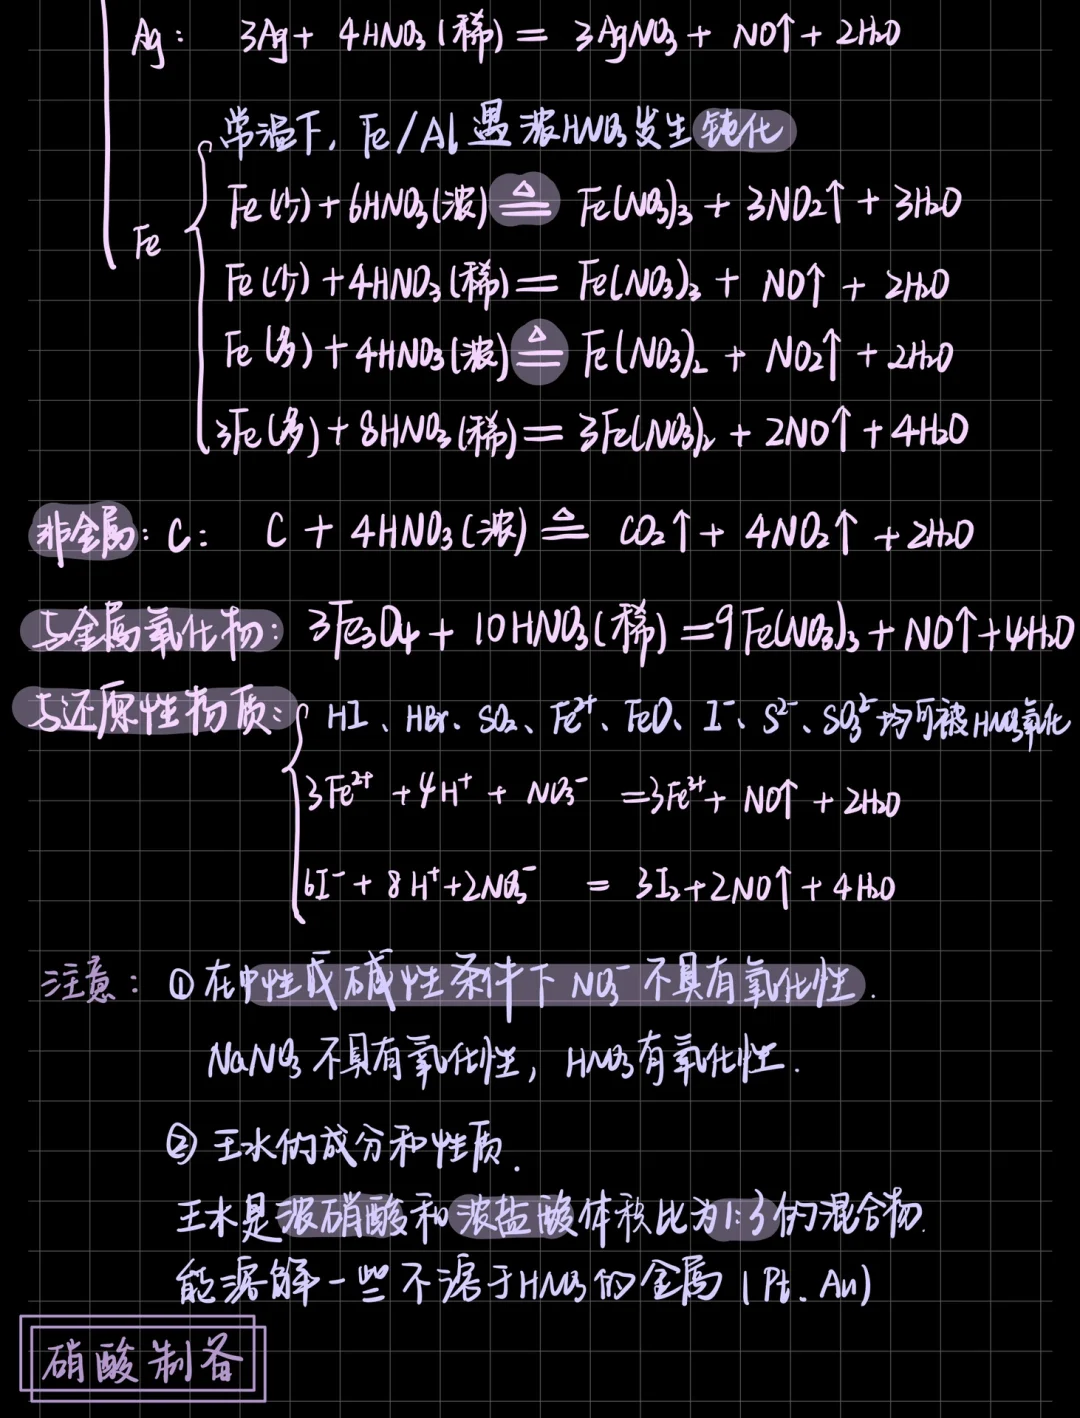 Ag: 3Ag + 4HNO₃(稀) = 3AgNO₃ + NO↑ + 2H₂O
常温下, Fe/Al 遇浓HNO₃发生钝化
Fe(少) + 6HNO₃(浓) ≜ Fe(NO₃)₃ + 3NO₂↑ + 3H₂O
Fe
Fe(少) + 4HNO₃(稀) = Fe(NO₃)₃ + NO↑ + 2H₂O
Fe(多) + 4HNO₃(浓) ≜ Fe(NO₃)₂ + NO₂↑ + 2H₂O
3Fe(多) + 8HNO₃(稀) = 3Fe(NO₃)₂ + 2NO↑ + 4H₂O
非金属: C: C + 4HNO₃(浓) ≜ CO₂↑ + 4NO₂↑ + 2H₂O
与金属氧化物: 3Fe₃O₄ + 10HNO₃(稀) = 9Fe(NO₃)₃ + NO↑ + 4H₂O
与还原性物质: HI、HBr、SO₂、Fe²⁺、FeO、I⁻、S²⁻、SO₃²⁻均可被HNO₃氧化
3Fe²⁺ + 4H⁺ + NO₃⁻ = 3Fe³⁺ + NO↑ + 2H₂O
6I⁻ + 8H⁺ + 2NO₃⁻ = 3I₂ + 2NO↑ + 4H₂O
注意: ① 在中性或碱性条件下 NO₃⁻ 不具有氧化性.
NaNO₃ 不具有氧化性, HNO₃有氧化性.
② 王水的成分和性质.
王水是浓硝酸和浓盐酸体积比为1:3的混合物.
能溶解一些不溶于HNO₃的金属 (Pt、Au)
硝酸制备